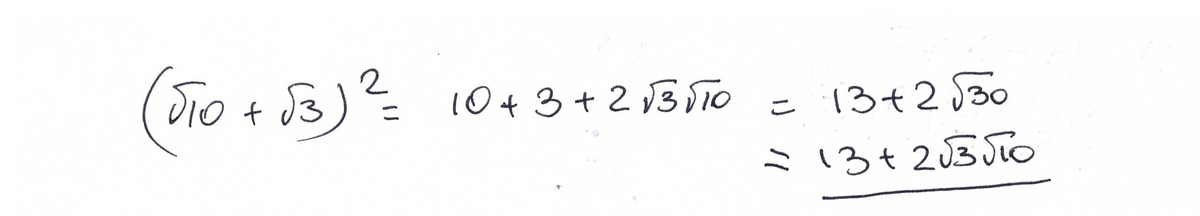 (√10 + √3)² = 10 + 3 + 2√3√10 = 13 + 2√30
= 13 + 2√3√10